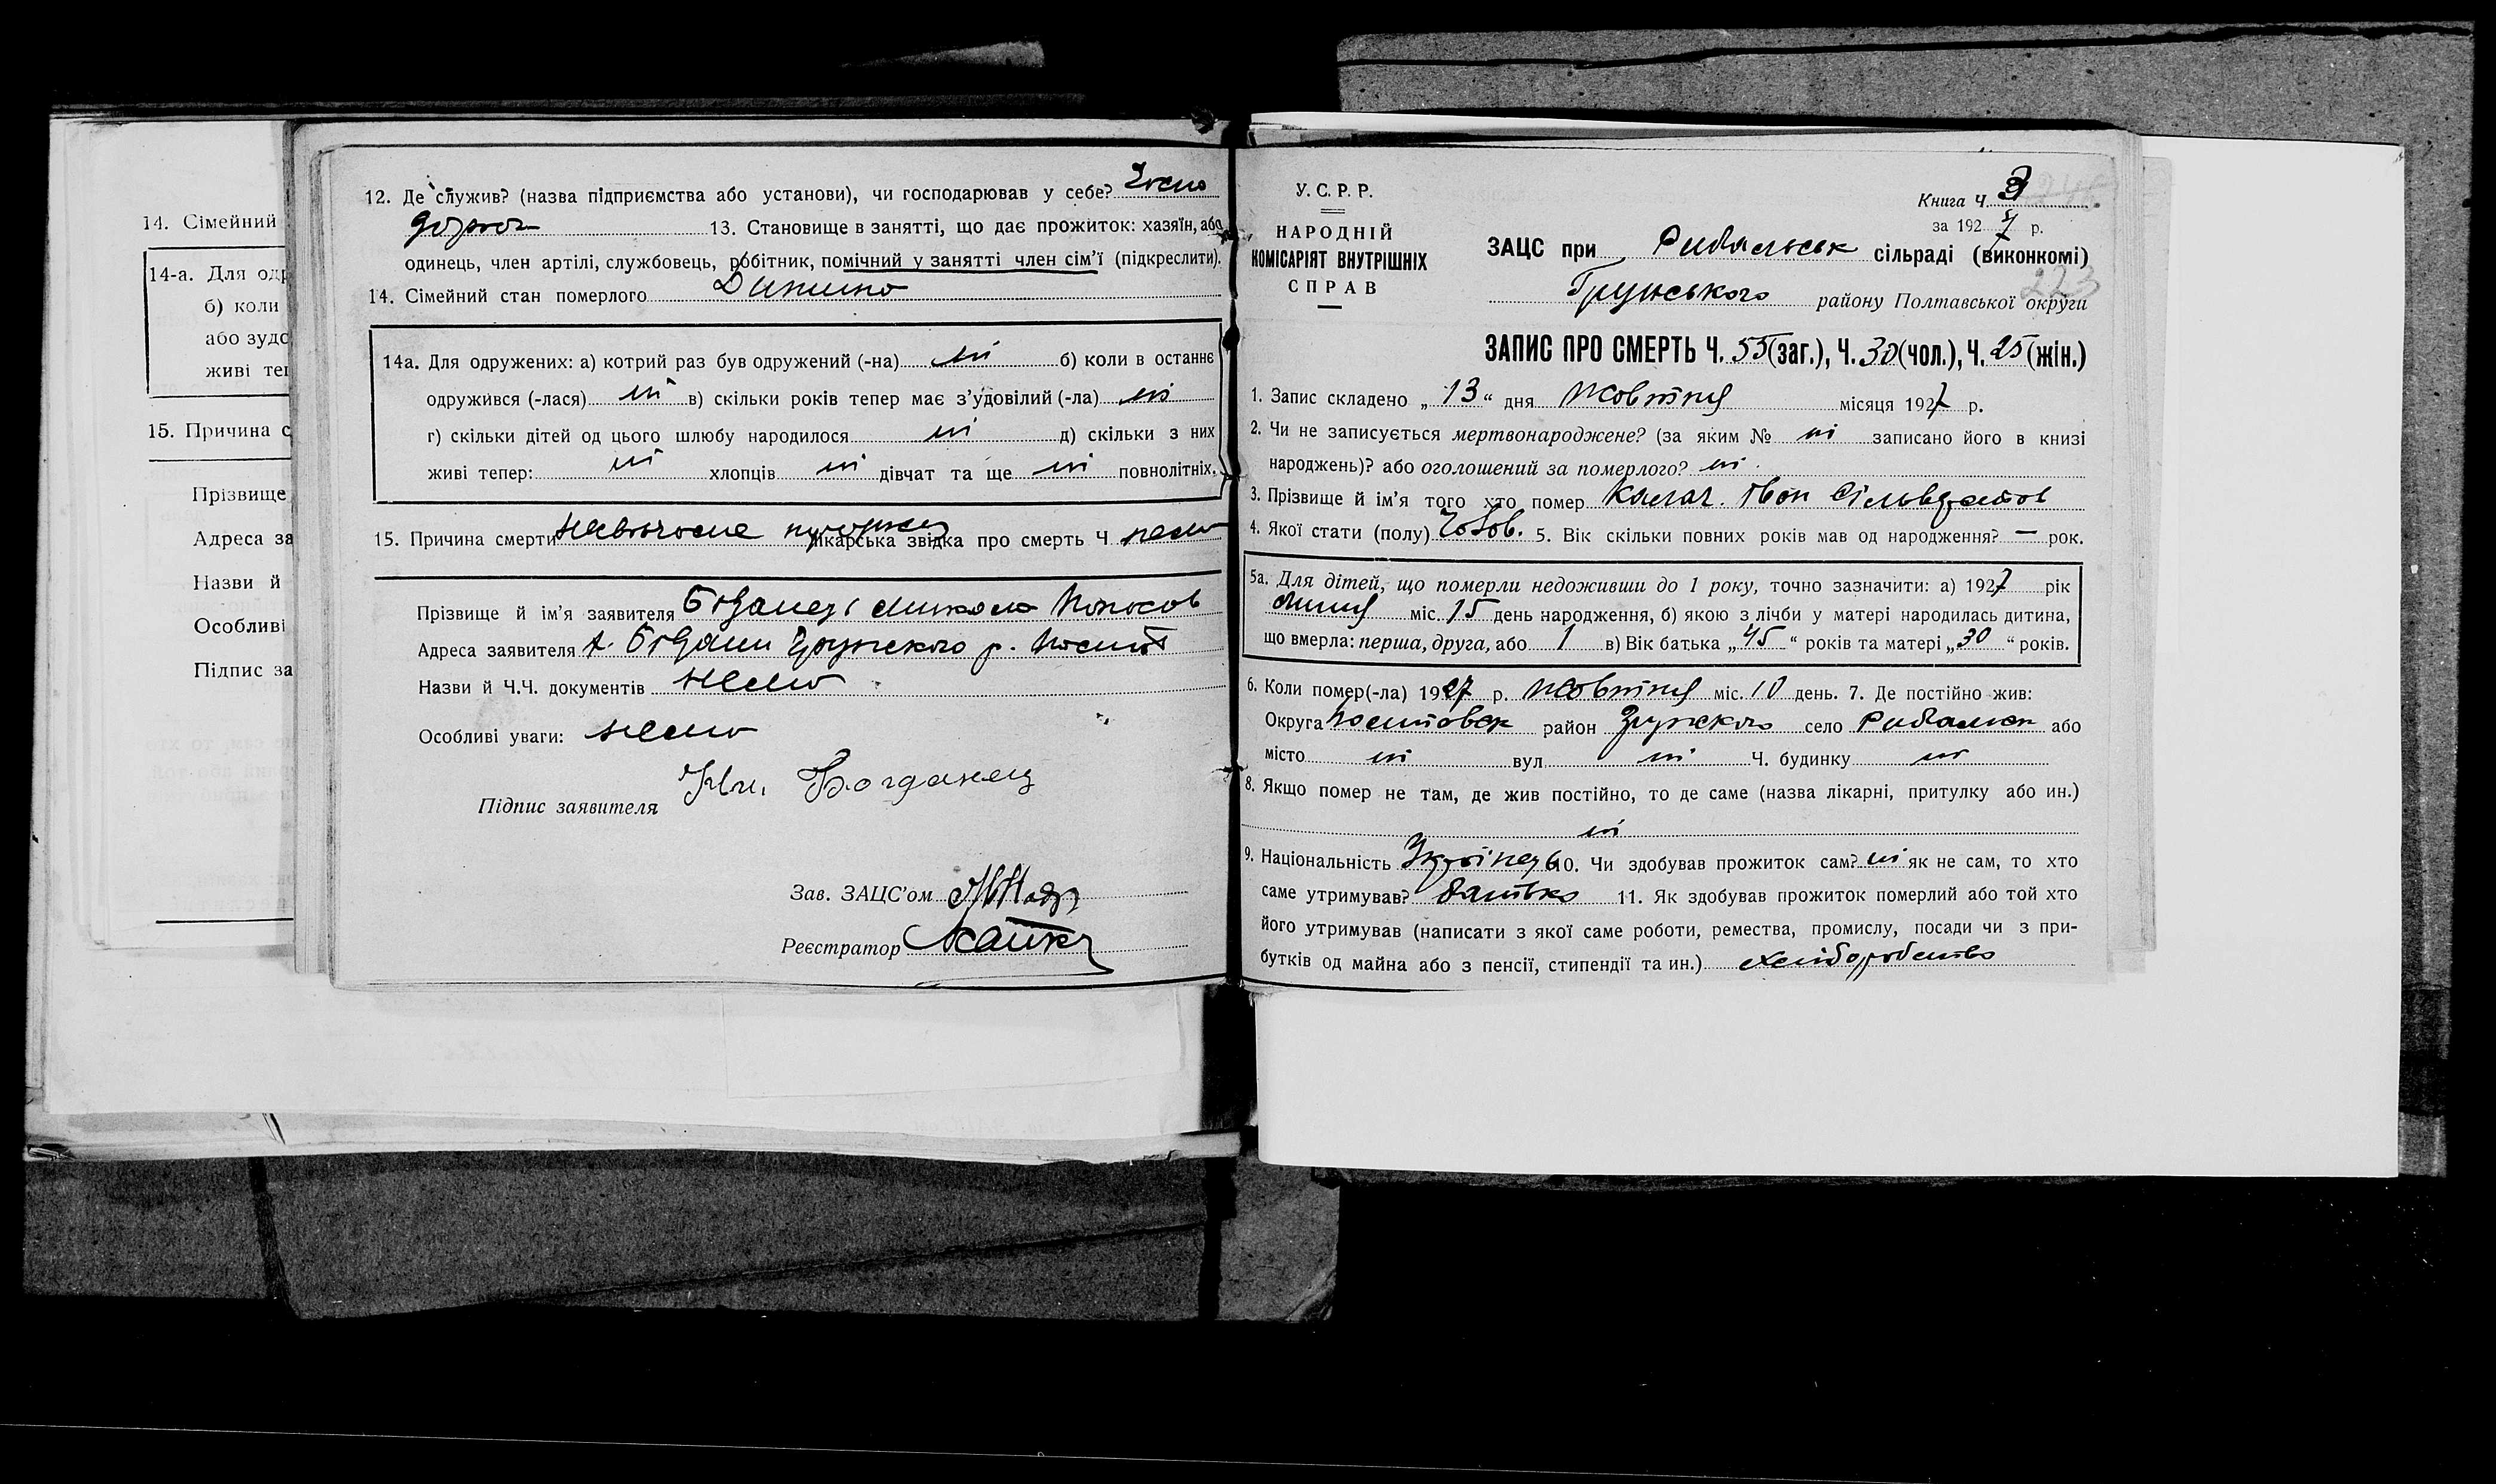 14. Сімейний
14-а. Для одр
б) коли
або зудо
живі теп
15. Причина с
Прізвище
Адреса за
Назви й
Особливі
Підпис за
12. Де служив? (назва підприємства або установи), чи господарював у себе?
13. Становище в занятті, що дає прожиток: хазяїн, або
одинець, член артілі, службовець, робітник, помічний у занятті член сім’ї (підкреслити).
14. Сімейний стан померлого
14а. Для одружених: а) котрий раз був одружений (-на) ні б) коли в останнє
одружився (-лася) ні в) скільки років тепер має з’удовілий (-ла) ні
г) скільки дітей од цього шлюбу народилося ні д) скільки з них
живі тепер: ні хлопців ні дівчат та ще ні повнолітніх.
15. Причина смерти лікарська звідка про смерть Ч нема
Прізвище й ім’я заявителя Микола
Адреса заявителя х. р.
Назви й Ч.Ч. документів нема
Особливі уваги: нема
Підпис заявителя Богданец
Зав. ЗАЦС’ом
Реєстратор
У.С.Р.Р.
НАРОДНІЙ
КОМІСАРІЯТ ВНУТРІШНІХ
СПРАВ
Книга Ч. 3
за 1927 р.
223
ЗАЦС при Рибальськ сільраді (виконкомі)
Грунського району Полтавської округи
ЗАПИС ПРО СМЕРТЬ Ч. 55 (заг.), Ч. 30 (чол.), Ч. 25 (жін.)
1. Запис складено „ 13 “ дня Жовтня місяця 1927 р.
2. Чи не записується мертвонароджене? (за яким № ні записано його в книзі
народжень)? або оголошений за померлого? ні
3. Прізвище й ім’я того хто помер Калач Іван
4. Якої стати (полу) Чолов. 5. Вік скільки повних років мав од народження? — рок.
5а. Для дітей, що померли недоживши до 1 року, точно зазначити: а) 1927 рік
Липня міс. 15 день народження, б) якою з лічби у матері народилась дитина,
що вмерла: перша, друга, або 1 в) Вік батька „ 45 “ років та матері „ 30 “ років.
6. Коли помер(-ла) 1927 р. Жовтня міс. 10 день. 7. Де постійно жив:
Округа район село або
місто ні вул ні Ч. будинку ні
8. Якщо помер не там, де жив постійно, то де саме (назва лікарні, притулку або ин.)
ні
9. Національність 10. Чи здобував прожиток сам? ні як не сам, то хто
саме утримував? батько 11. Як здобував прожиток померлий або той хто
його утримував (написати з якої саме роботи, ремества, промислу, посади чи з при-
бутків од майна або з пенсії, стипендії та ин.) хліборобство